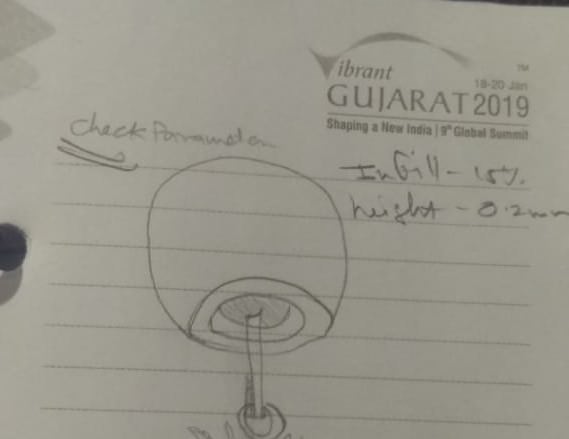 Vibrant
TM
18-20 Jan
GUJARAT 2019
Shaping a New India | 9th Global Summit
Check Parameter
Infill - 15%.
height - 0.2mm